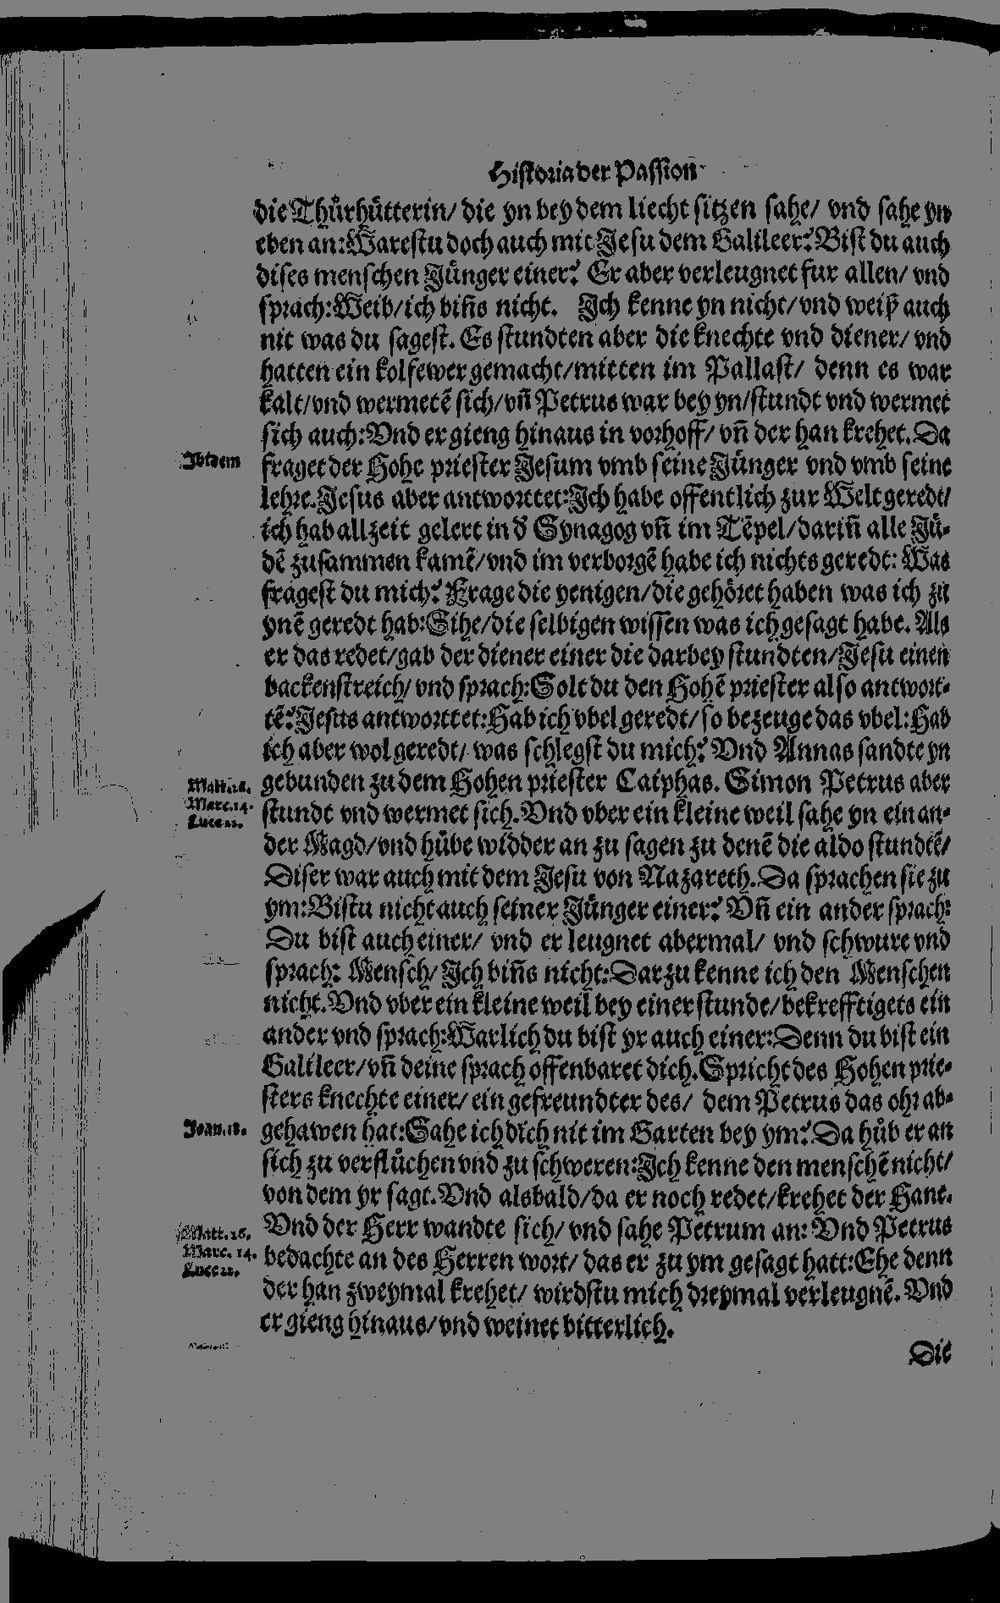 Historia der Passion
die Thürhütterin/ die yn bey dem liecht sitzen sahe/ vnd sahe yn
eben an: Warestu doch auch mit Jesu dem Galileer? Bist du auch
dises menschen Jünger einer? Er aber verleugnet fur allen/ vnd
sprach: Weib/ ich bins nicht. Ich kenne yn nicht/ vnd weiß auch
nit was du sagest. Es stundten aber die knechte vnd diener/ vnd
hatten ein kolfewer gemacht/ mitten im Pallast/ denn es war
kalt/ vnd wermetē sich/ vñ Petrus war bey yn/ stundt vnd wermet
sich auch: Vnd er gieng hinaus in vorhoff/ vñ der han krehet. Da
Ibidem
fraget der Hohe priester Jesum vmb seine Jünger vnd vmb seine
lehre. Jesus aber antworttet: Ich habe offentlich zur Welt geredt/
ich hab allzeit gelert in d̄ Synagog vñ im Tēpel/ dariñ alle Jü-
dē zusammen kamē/ vnd im verborgē habe ich nichts geredt: Was
fragest du mich? Frage die yenigen/ die gehöret haben was ich zu
ynē geredt hab: Sihe/ die selbigen wissen was ich gesagt habe. Als
er das redet/ gab der diener einer die darbey stundten/ Jesu einen
backenstreich/ vnd sprach: Solt du den Hohē priester also antwort-
tē? Jesus antworttet: Hab ich vbel geredt/ so bezeuge das vbel: Hab
ich aber wol geredt/ was schlegst du mich? Vnd Annas sandte yn
Matt.26.
Marc.14.
Luce 22.
gebunden zu dem Hohen priester Caiphas. Simon Petrus aber
stundt vnd wermet sich. Vnd vber ein kleine weil sahe yn ein an-
der Magd/ vnd hübe widder an zu sagen zu denē die aldo stundtē/
Diser war auch mit dem Jesu von Nazareth. Da sprachen sie zu
ym: Bistu nicht auch seiner Jünger einer? Vñ ein ander sprach:
Du bist auch einer/ vnd er leugnet abermal/ vnd schwure vnd
sprach: Mensch/ Ich biñs nicht: Darzu kenne ich den Menschen
nicht. Vnd vber ein kleine weil bey einer stunde/ bekrefftigets ein
ander vnd sprach: Warlich du bist yr auch einer: Denn du bist ein
Galileer/ vñ deine sprach offenbaret dich. Spricht des Hohen prie-
sters knechte einer/ ein gefreundter des/ dem Petrus das ohr ab-
Joan.18.
gehawen hat: Sahe ich dich nit im Garten bey ym? Da hüb er an
sich zu verflüchen vnd zu schweren: Ich kenne den menschē nicht/
von dem yr sagt. Vnd alsbald/ da er noch redet/ krehet der Hane.
Matt.26.
Marc.14.
Luce 22.
Vnd der Herr wandte sich/ vnd sahe Petrum an: Vnd Petrus
bedachte an des Herren wort/ das er zu ym gesagt hatt: Ehe denn
der han zweymal krehet/ wirdstu mich dreymal verleugnē. Vnd
er gieng hinaus/ vnd weinet bitterlich.
Die